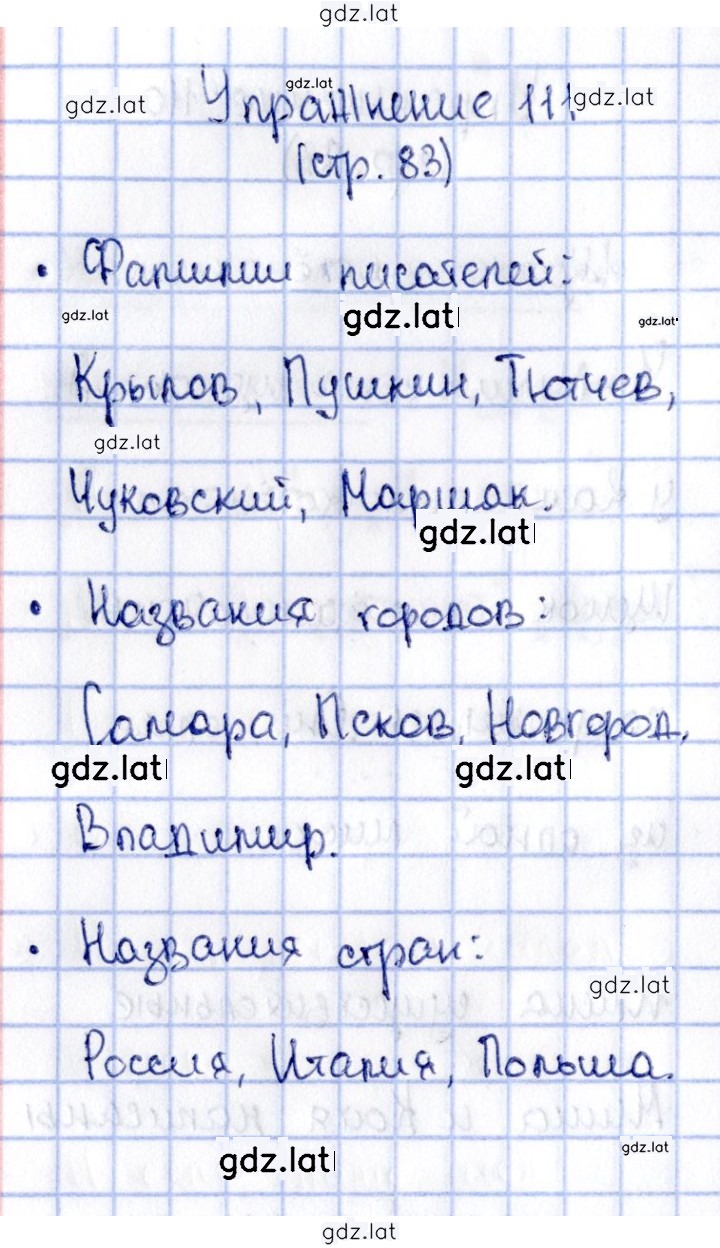 gdz.lat
gdz.lat
gdz.lat
gdz.lat
Упражнение 111.
(стр. 83)
• Фамилии писателей:
gdz.lat
gdz.lat
gdz.lat
Крылов, Пушкин, Тютчев,
gdz.lat
Чуковский, Маршак.
gdz.lat
• Названия городов:
Самара, Псков, Новгород,
gdz.lat
gdz.lat
Владимир.
• Названия стран:
gdz.lat
Россия, Италия, Польша.
gdz.lat
gdz.lat
gdz.lat